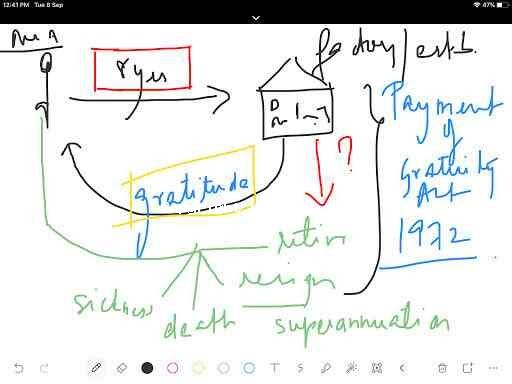 12:41 PM Tue 8 Sep
47%
Mr A
8 yrs
factory/estb.
?
Payment
of
Gratuity
Act
1972
gratitude
retire
resign
sickness
death
superannuation